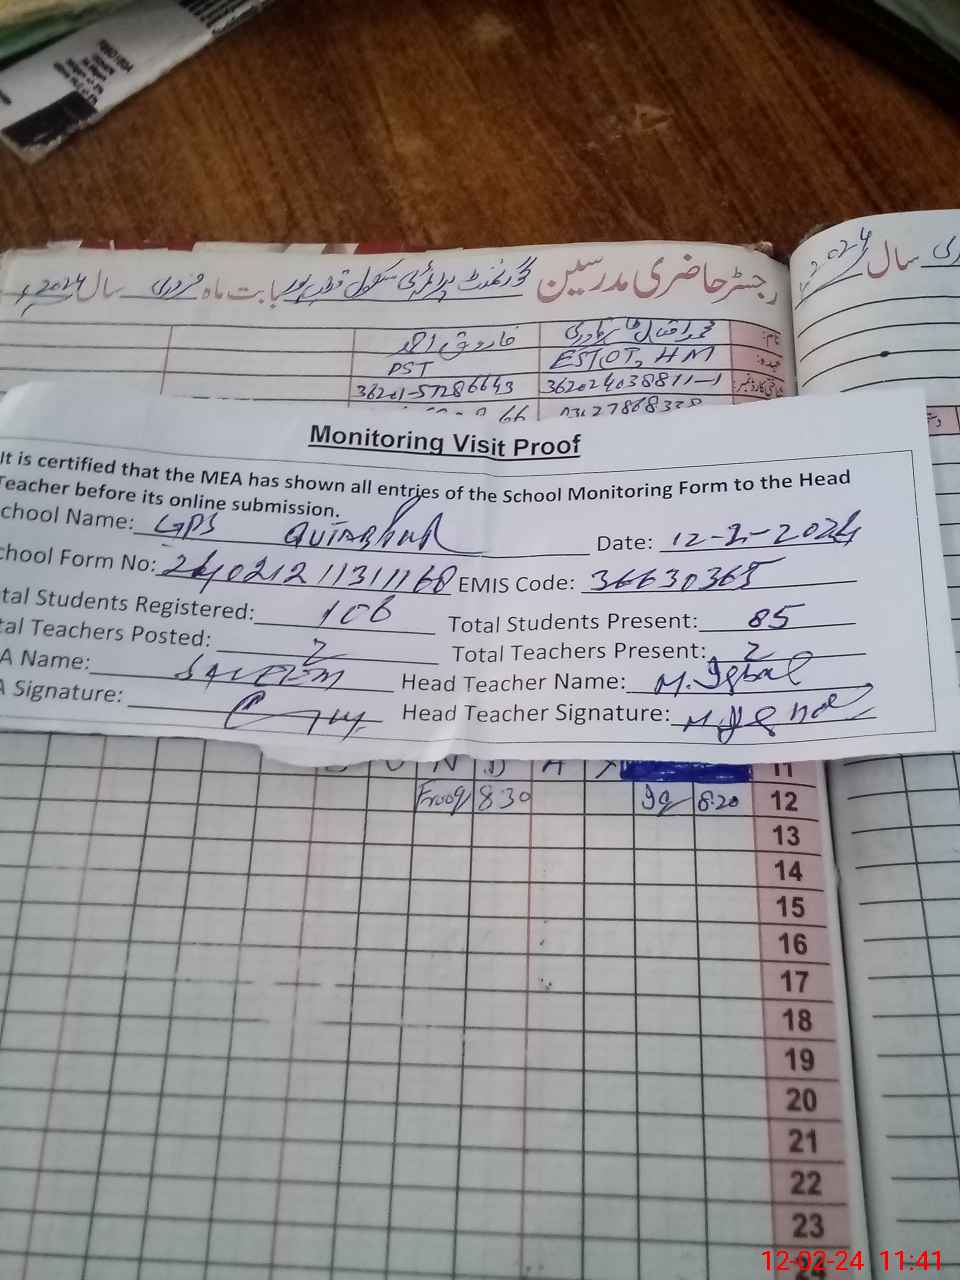 رجسٹر حاضری مدرسین گورنمنٹ پرائمری سکول قطب پور بابت ماہ فروری سال 2024ء
سال 2024
نام: محمد اقبال قادری فاروق احمد
عہدہ: EST(OT), HM PST
شناختی کارڈ نمبر: 362024038811-1 36201-57286643
03127868328 66
Monitoring Visit Proof
It is certified that the MEA has shown all entries of the School Monitoring Form to the Head
Teacher before its online submission.
chool Name: GPS QUTABPUR Date: 12-2-2024
chool Form No: 2402121131168 EMIS Code: 36630365
tal Students Registered: 106 Total Students Present: 85
tal Teachers Posted: 2 Total Teachers Present: 2
A Name: SALEEM Head Teacher Name: M. Iqbal
A Signature: Head Teacher Signature: M. Iqbal
S U N D A Y 11
Frooq 8:30 Iq 8:20 12
13
14
15
16
17
18
19
20
21
22
23
12-02-24 11:41